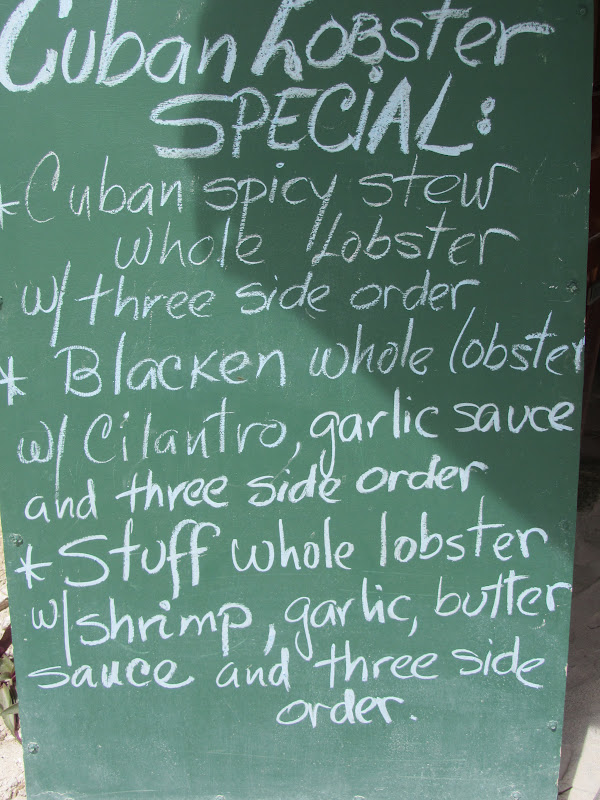 Cuban Lobster
SPECIAL:
*Cuban spicy stew
whole Lobster
w/ three side order
* Blacken whole lobster
w/ Cilantro, garlic sauce
and three side order
*Stuff whole lobster
w/shrimp, garlic, butter
sauce and three side
order.